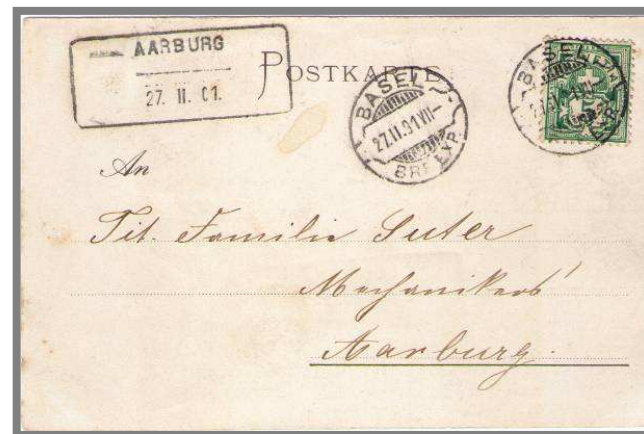 AARBURG
27. II. 01.
POSTKARTE
BASEL
27.II.91VII–
BRF. EXP.
BASEL
BRF. EXP.
An
Tit. Familie Suter
Mechanikers
Aarburg.